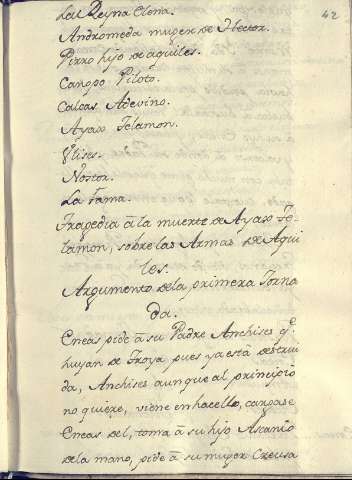 42
La Reyna Elena.
Andromeda muger de Hector.
Pirro hijo de aquiles.
Canopo Piloto.
Calcas Adevino.
Ayax Telamon.
Ulises.
Nestor.
La Fama.
Tragedia á la muerte de Ayax Te-
lamon, sobre las Armas de Aqui
les.
Argumento de la primera Jorna
da.
Eneas pide á su Padre Anchises q.e
huyan de Troya pues ya está destrui
da, Anchises aunque al principio
no quiere, viene en hacello, cargase
Eneas del, toma á su hijo Ascanio
de la mano, pide á su muger Creusa